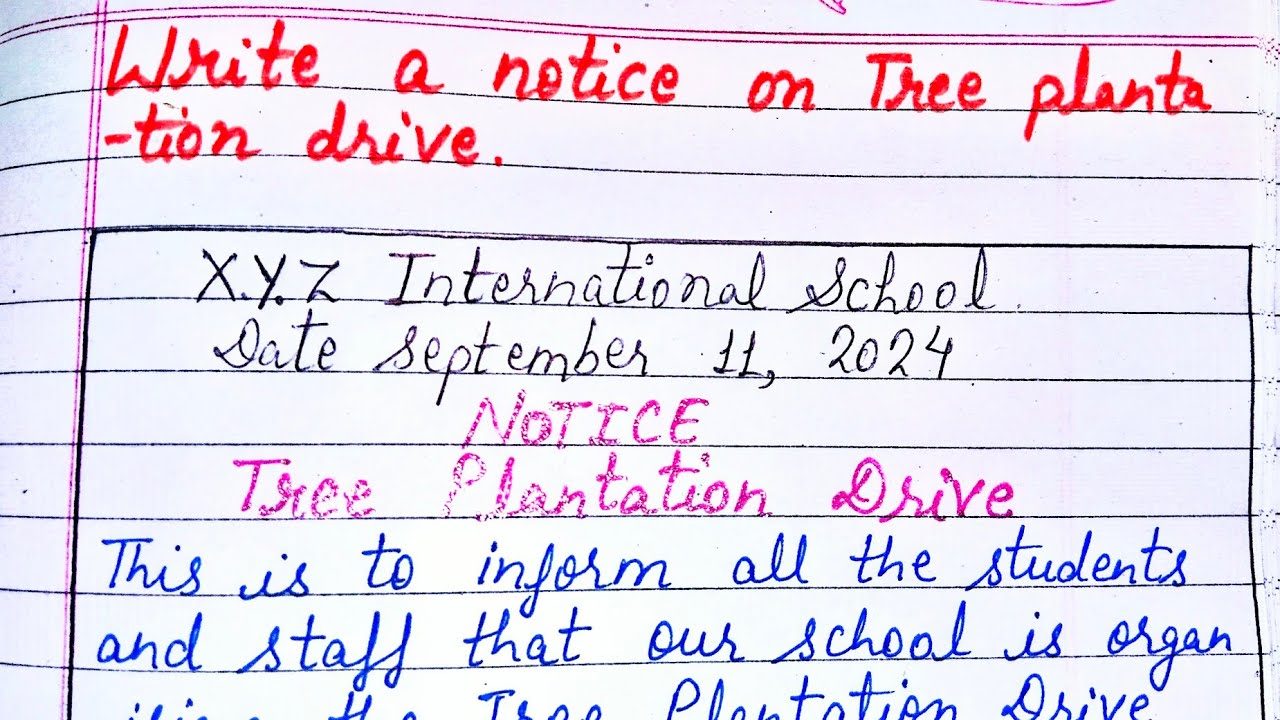 Write a notice on Tree planta
-tion drive.
X.Y.Z International School
Date September 11, 2024
NOTICE
Tree Plantation Drive
This is to inform all the students
and staff that our school is organ
ising the Tree Plantation Drive